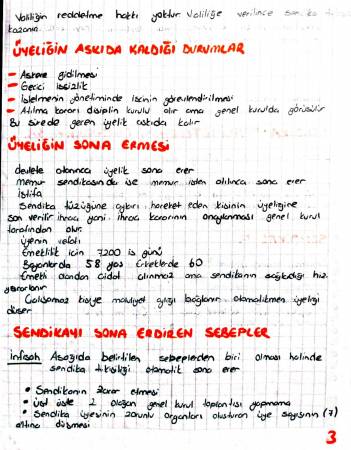 Valiliğin reddetme hakkı yoktur. Valiliğe verilince sendika
kazanır.
ÜYELİĞİN ASKIDA KALDIĞI DURUMLAR
- Askere gidilmesi
- Geçici işsizlik
- İşletmenin yönetiminde işçinin görevlendirilmesi
- Atılma kararı disiplin kurulu alır ama genel kurulda görüşülür
Bu sürede geren üyelik askıda kalır
ÜYELİĞİN SONA ERMESİ
devlete atanınca üyelik sona erer
Memur sendikasında ise memur işten atılınca sona erer
İstifa
Sendika tüzüğüne aykırı hareket eden kişinin üyeliğine
son verilir ihraç yani ihraç kararının onaylanması genel kurul
tarafından olur.
Üyenin vefatı
Emeklilik için 7200 iş günü
Bayanlarda 58 yaş Erkeklerde 60
Emekli olandan aidat alınmaz ama sendikanın sağladığı hiz.
yararlanır
Çalışamaz kişiye maluliyet aylığı bağlanır. otomatikmen üyeliği
düşer
SENDİKAYI SONA ERDİREN SEBEPLER
İnfisah Aşağıda belirtilen sebeplerden biri olması halinde
sendika tüzel kişiliği otomatik sona erer
• Sendikanın zarar etmesi
• Üst üste 2 olağan genel kurul toplantısı yapmama
• Sendika üyesinin zorunlu organları oluşturan üye sayısının (7)
altına düşmesi
3